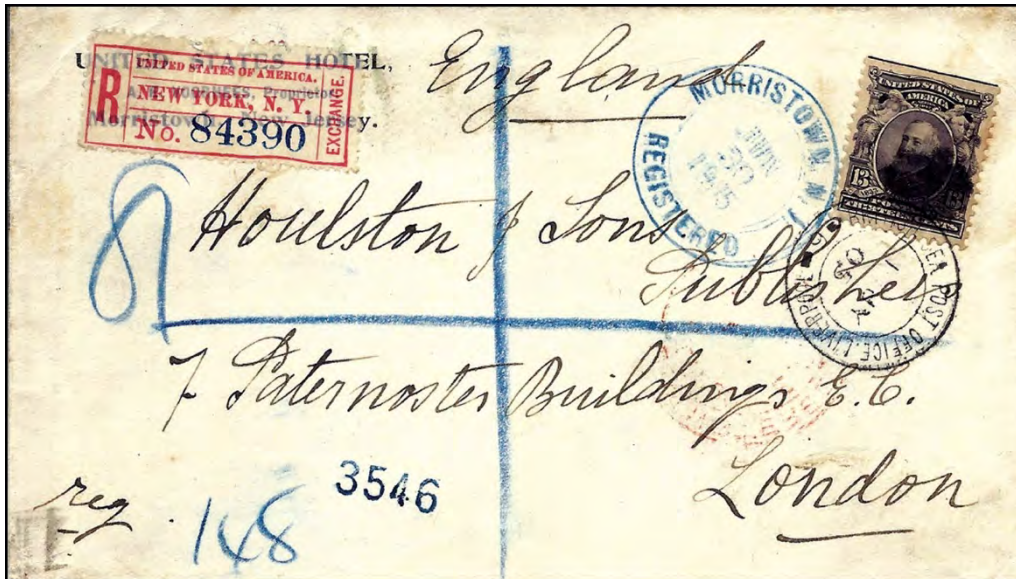 UNITED STATES HOTEL,
Proprietor
Morristown, New Jersey.
R
UNITED STATES OF AMERICA.
NEW YORK, N. Y.
No. 84390
EXCHANGE.
England
MORRISTOWN, N. J.
JUN
30
1905
REGISTERED
UNITED STATES OF
AMERICA
13
13
THIRTEEN CENTS
SEA POST OFFICE. LIVERPOOL
Houlston & Sons
Publishers
7 Paternoster Buildings E.C.
London
3546
reg
148